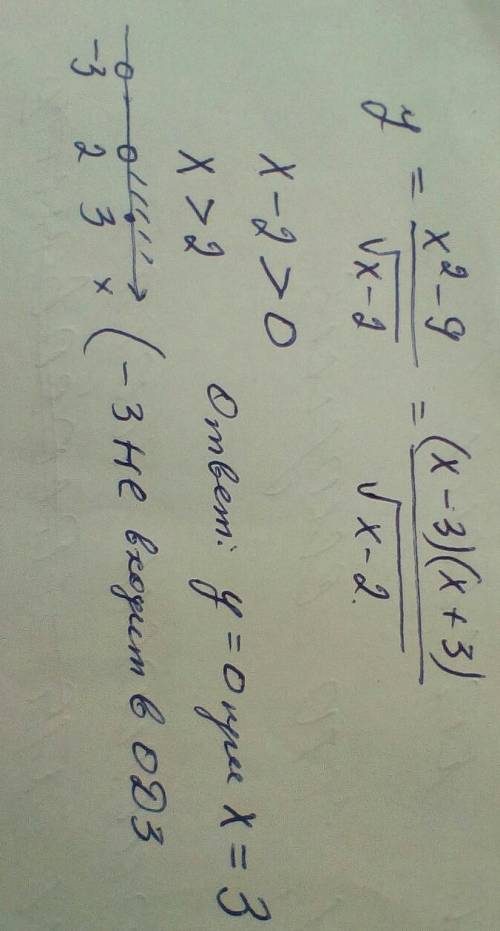 y = x² - 9 / √x - 2 = (x - 3)(x + 3) / √x - 2.
x - 2 > 0
x > 2
Ответ: y = 0 при x = 3
-3 2 3 x
(-3 не входит в ОДЗ